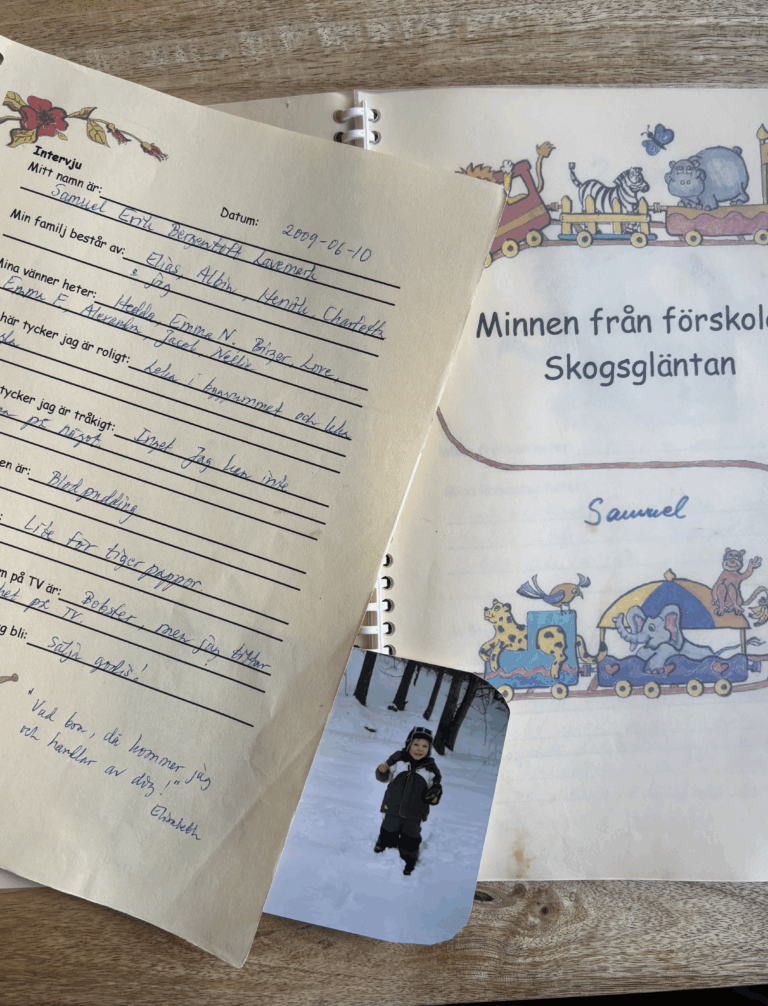 Intervju
Mitt namn är: Samuel Erik Bergentoft Lavemark
Datum: 2009-06-10
Min familj består av: Elias, Albin, Henrik, Charlotth
& jag
Mina vänner heter: Hedda, Emma N. Birger, Love,
Emma F, Alexander, Jacob Nellie
här tycker jag är roligt: Leka i byggrummet och leka
tycker jag är tråkigt: Inget Jag kan inte
på något.
en är: Blodpudding
: Lite för tiger pappor.
m på TV är: Bobster, men jag tittar
på TV
g bli: sälja godis!
"Vad bra, då kommer jag
och handlar av dig!"
Elisabeth
Minnen från förskola
Skogsgläntan
Samuel